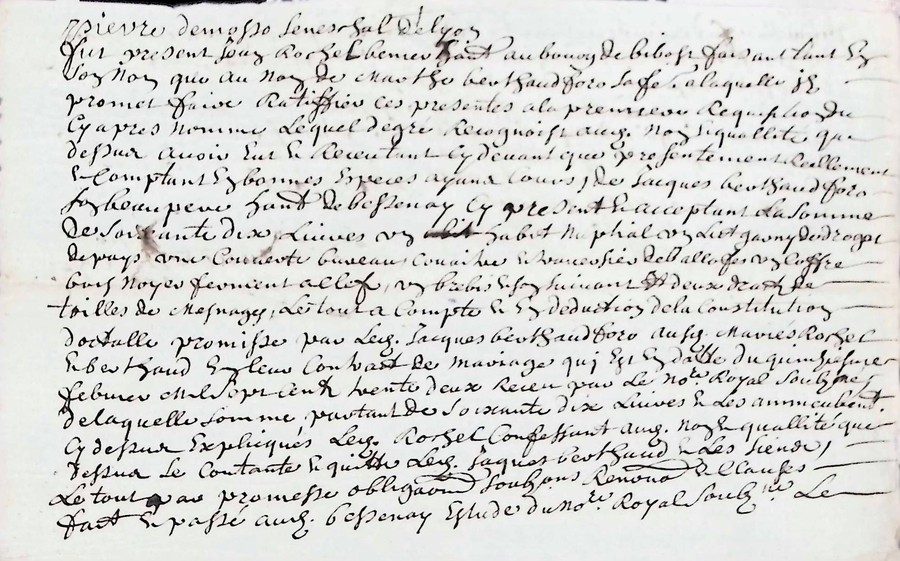 pierre demosso seneschal de lyon
fut present Jean Rochet benier habt au bourg de bibost faisant tant En
son Nom que au Nom de Marthe berthaud foro sa fe. a laquelle il
promet faire Ratiffier ces presentes a la premiere Requisition du
Cy apres Nomme Lequel de gre Recognoist aud. Nom & quallite que
dessus avoir Eut & Receu tant Cy devant que presentement Reellement
& Comptant En bonnes Especes ayant Cours, de Jacques berthaud foro
son beau pere habt de bessenay Cy present & acceptant La Somme
De Soixante dix Livres un habit Nuptial un Lict garny de drapt
de pays une Couverte bureau Couaitre & traversier de ballofes un Coffre
bois Noyer fermant a Clef, un brebis & son suivant & deux draps de
toilles de Mesnages, Le tout a Compte & En deduction de la Constitution
dottalle promisse par Led. Jacques berthaud foro ausd. Mariés Rochet
& berthaud En leur Contrat de Mariage qui Est En datte du quinziesme
febvrier Mil Sept Cent trente deux Receu par Le Nore. Royal Soubsné,
de laquelle Somme partant de Soixante dix Livres & Les ammeublemt.
Cy dessus Expliqués Led. Rochet Confessant aud. Nom & quallite que
dessus se Contante & quitte Led. Jaques berthaud & Les Siens,
Le tout par promesse obligaon Soubzons Renonon & Clauses
fait & passé aud. bessenay Estude du Nore. Royal Soubzné Le